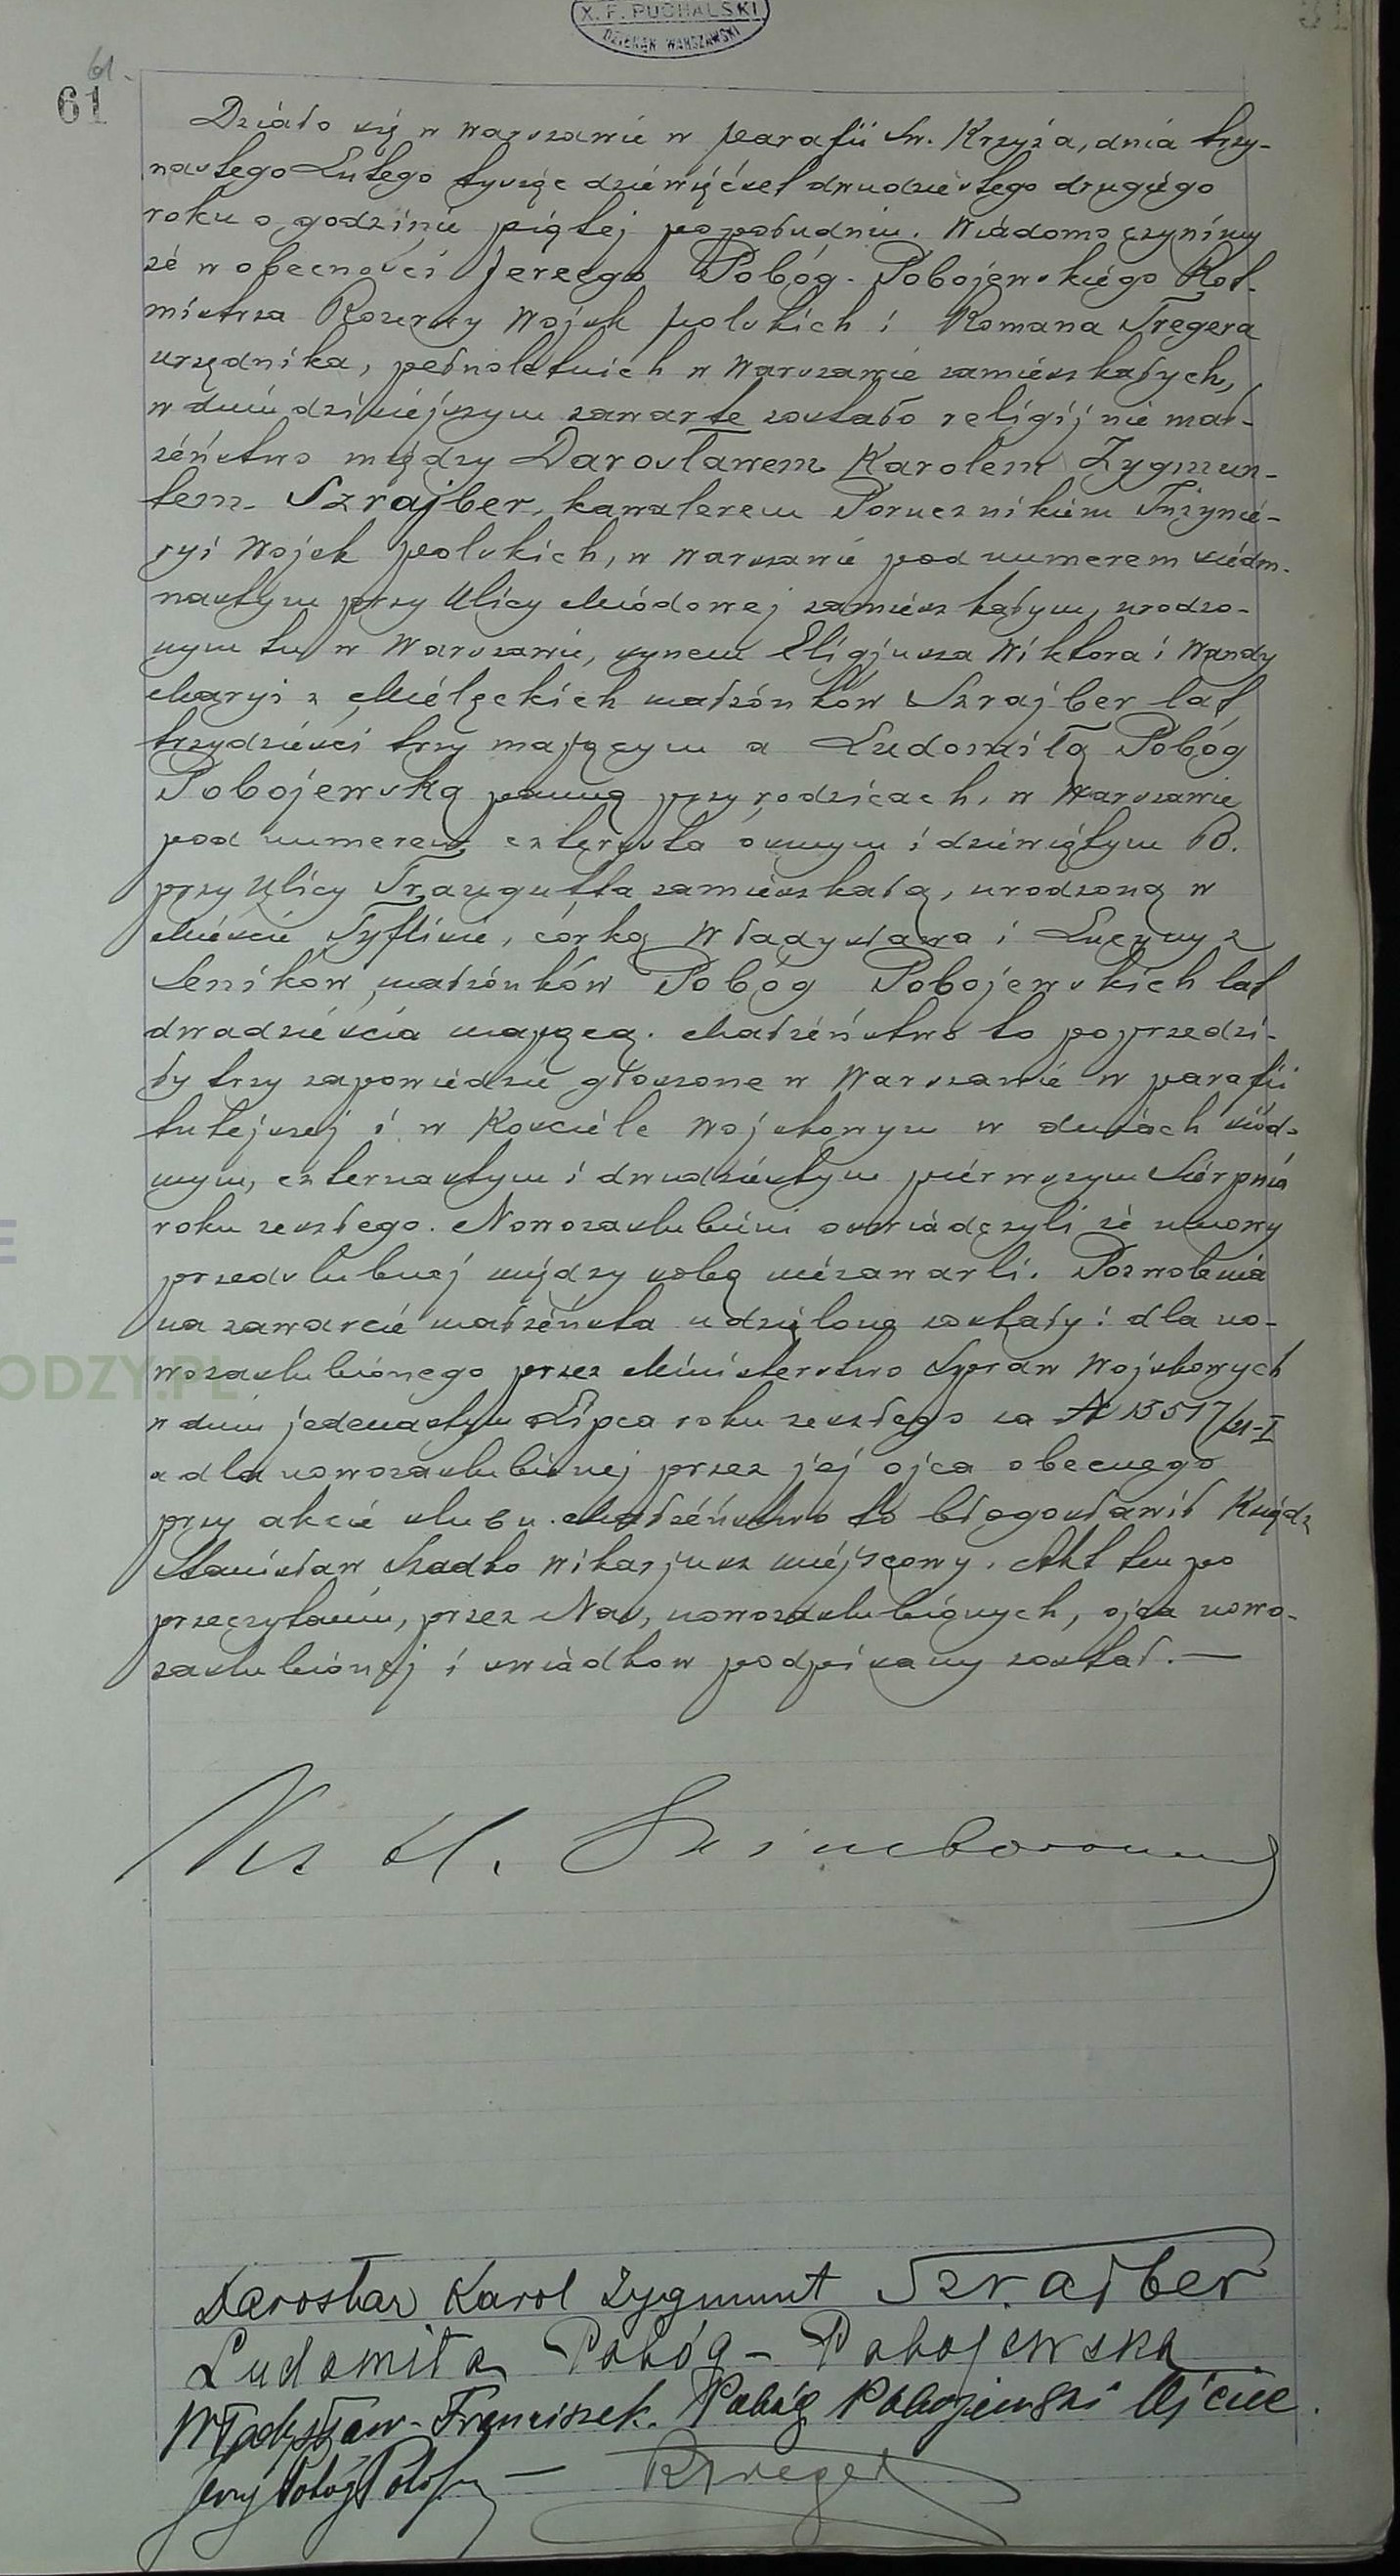 X. F. PUCHALSKI
DZIEKAN WARSZAWSKI
61.
61
Działo się w Warszawie w parafii Św. Krzyża, dnia trzy-
nastego Lutego tysiąc dziewięćset dwudziestego drugiego
roku o godzinie piątej popołudniu. Wiadomo czynimy
że w obecności Jerzego Pobóg-Pobojewskiego Rot-
mistrza Rezerwy Wojsk polskich i Romana Tregera
urzędnika, pełnoletnich w Warszawie zamieszkałych,
w dniu dzisiejszym zawarte zostało religijnie mał-
żeństwo między Darosławem Karolem Zygmun-
tem Szrajber, kawalerem Porucznikiem Inżynie-
ryi Wojsk polskich, w Warszawie pod numerem siedm-
nastym przy Ulicy Miodowej zamieszkałym, urodzo-
nym tu w Warszawie, synem Eligjusza Wiktora i Wandy
Maryi z Mielęckich małżonków Szrajber lat
trzydzieści trzy mającym a Ludomiłą Pobóg
Pobojewską panną przy rodzicach, w Warszawie
pod numerem czterysta ósmym i dziewiątym B.
przy Ulicy Traugutta zamieszkałą, urodzoną w
Mieście Tyflisie, córką Władysława i Lucyny z
Seników małżonków Pobóg Pobojewskich lat
dwadzieścia mającą. Małżeństwo to poprzedzi-
ły trzy zapowiedzie głoszone w Warszawie w parafii
tutejszej i w Kościele Wojskowym w dniach siód-
mym, czternastym i dwudziestym pierwszym Sierpnia
roku zeszłego. Nowozaślubieni oświadczyli że umowy
przedślubnej między sobą niezawarli. Pozwolenia
na zawarcie małżeństa udzielone zostały: dla no-
wozaślubionego przez Ministerstwo Spraw Wojskowych
w dniu jedenastym Lipca roku zeszłego za № 15517/21-I
a dla nowozaślubionej przez jej ojca obecnego
przy akcie ślubu. Małżeństwo to błogosławił Ksiądz
Stanisław Szadko Wikarjusz miejscowy. Akt ten po
przeczytaniu, przez Nas, nowozaślubionych, ojca nowo-
zaślubionej i świadków podpisany został.—
Ks
Darosław Karol Zygmunt Szrajber
Ludomiła Pobóg-Pobojewska
Władysław-Franciszek Pobóg Pobojewski Ojciec.
Jerzy Pobóg — RTreger
ODZY.PL